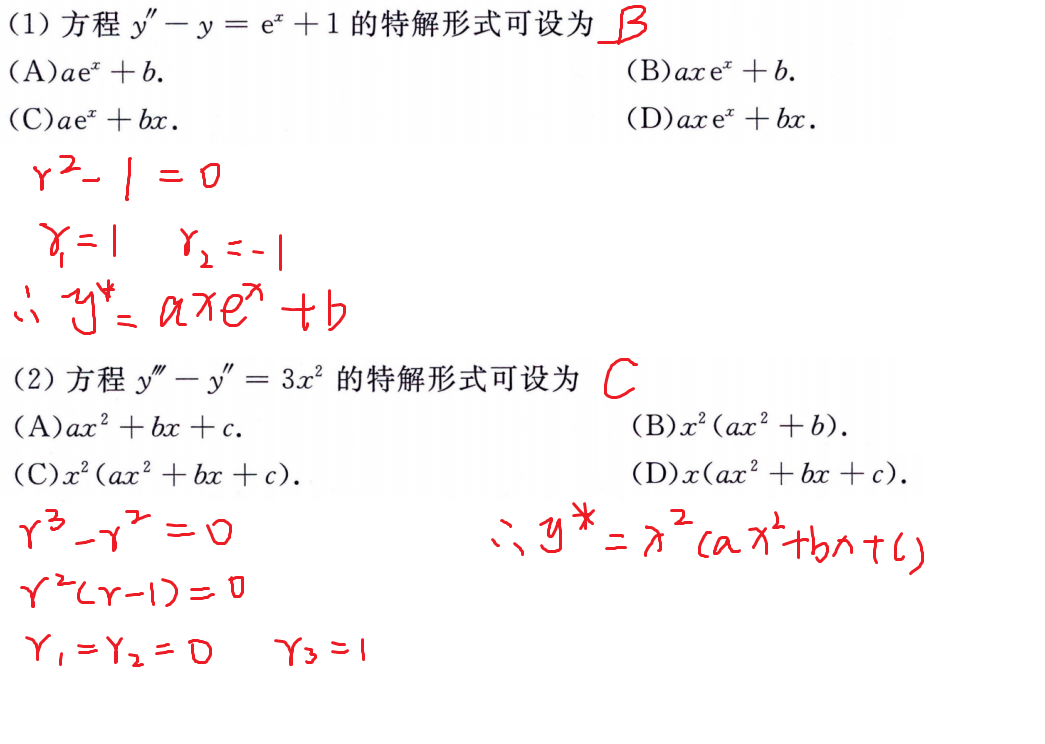 (1) 方程 y″ − y = eˣ + 1 的特解形式可设为 B
(A)aeˣ + b.
(B)axeˣ + b.
(C)aeˣ + bx.
(D)axeˣ + bx.
r² - 1 = 0
r₁ = 1 r₂ = -1
∴ y* = axeˣ + b
(2) 方程 y‴ − y″ = 3x² 的特解形式可设为 C
(A)ax² + bx + c.
(B)x²(ax² + b).
(C)x²(ax² + bx + c).
(D)x(ax² + bx + c).
r³ - r² = 0
r²(r-1) = 0
r₁ = r₂ = 0 r₃ = 1
∴ y* = x²(ax²+bx+c)